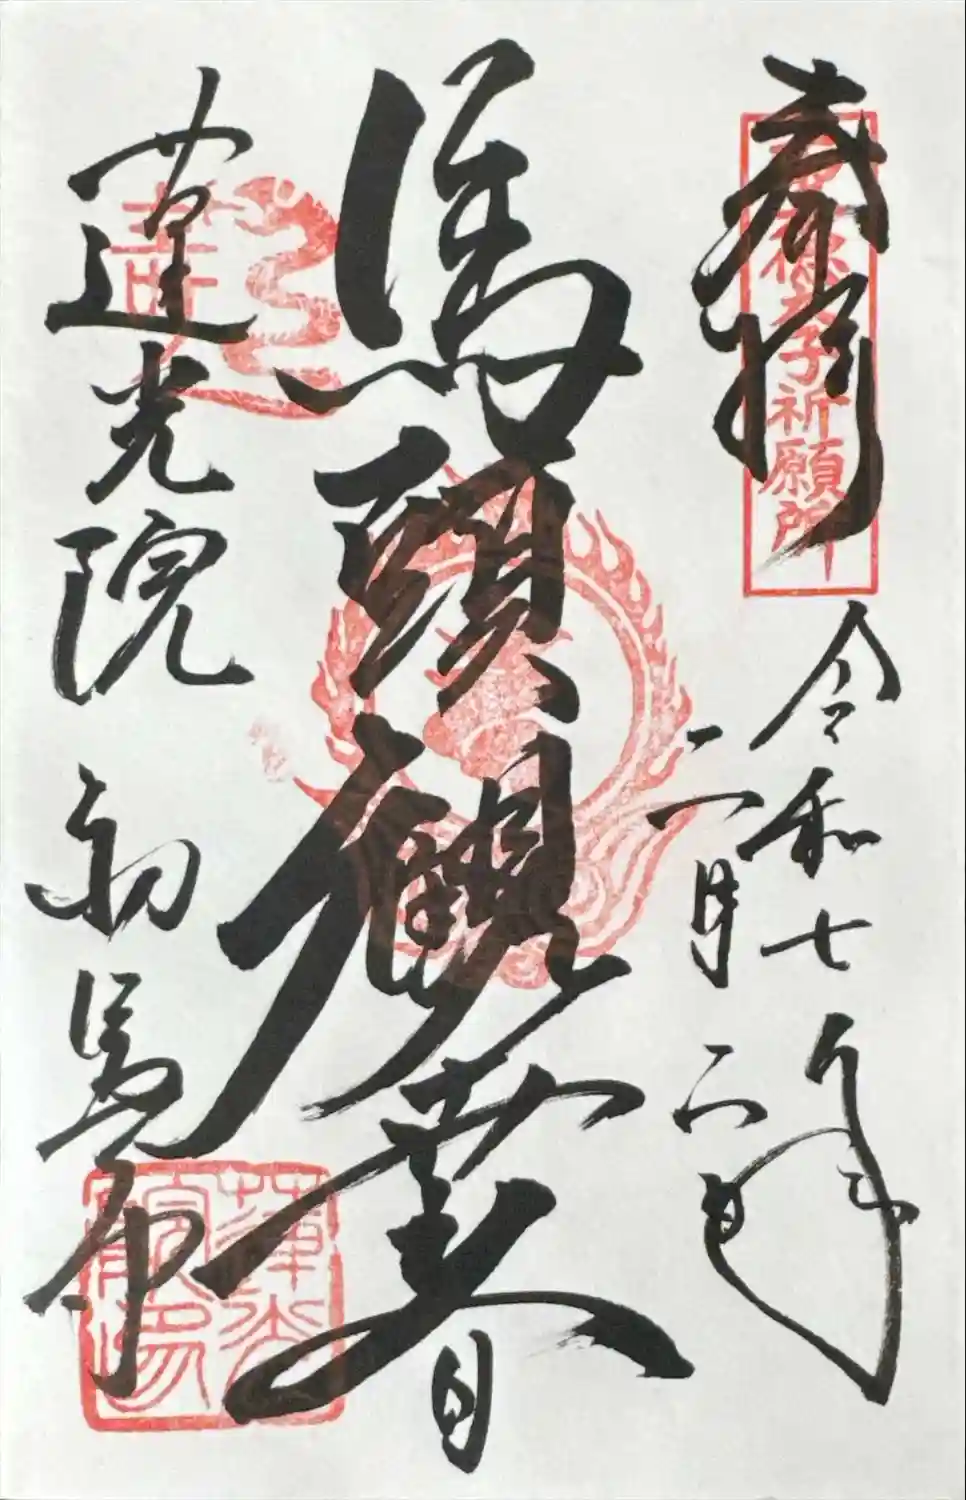 奉拝
聖徳太子祈願所
令和七年
二月六日
馬頭觀世音
蓮光院 初馬寺